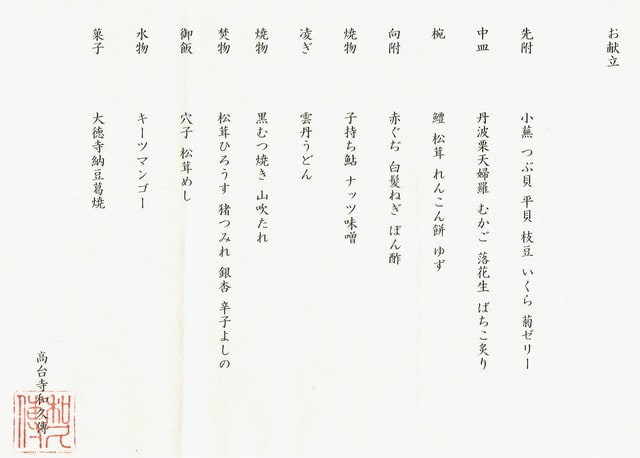 お献立
先附 小蕪 つぶ貝 平貝 枝豆 いくら 菊ゼリー
中皿 丹波栗天婦羅 むかご 落花生 ばちこ炙り
椀 鱧 松茸 れんこん餅 ゆず
向附 赤ぐぢ 白髪ねぎ ぽん酢
焼物 子持ち鮎 ナッツ味噌
凌ぎ 雲丹うどん
焼物 黒むつ焼き 山吹たれ
焚物 松茸ひろうす 猪つみれ 銀杏 辛子よしの
御飯 穴子 松茸めし
水物 キーツマンゴー
菓子 大徳寺納豆葛焼
高台寺和久傳